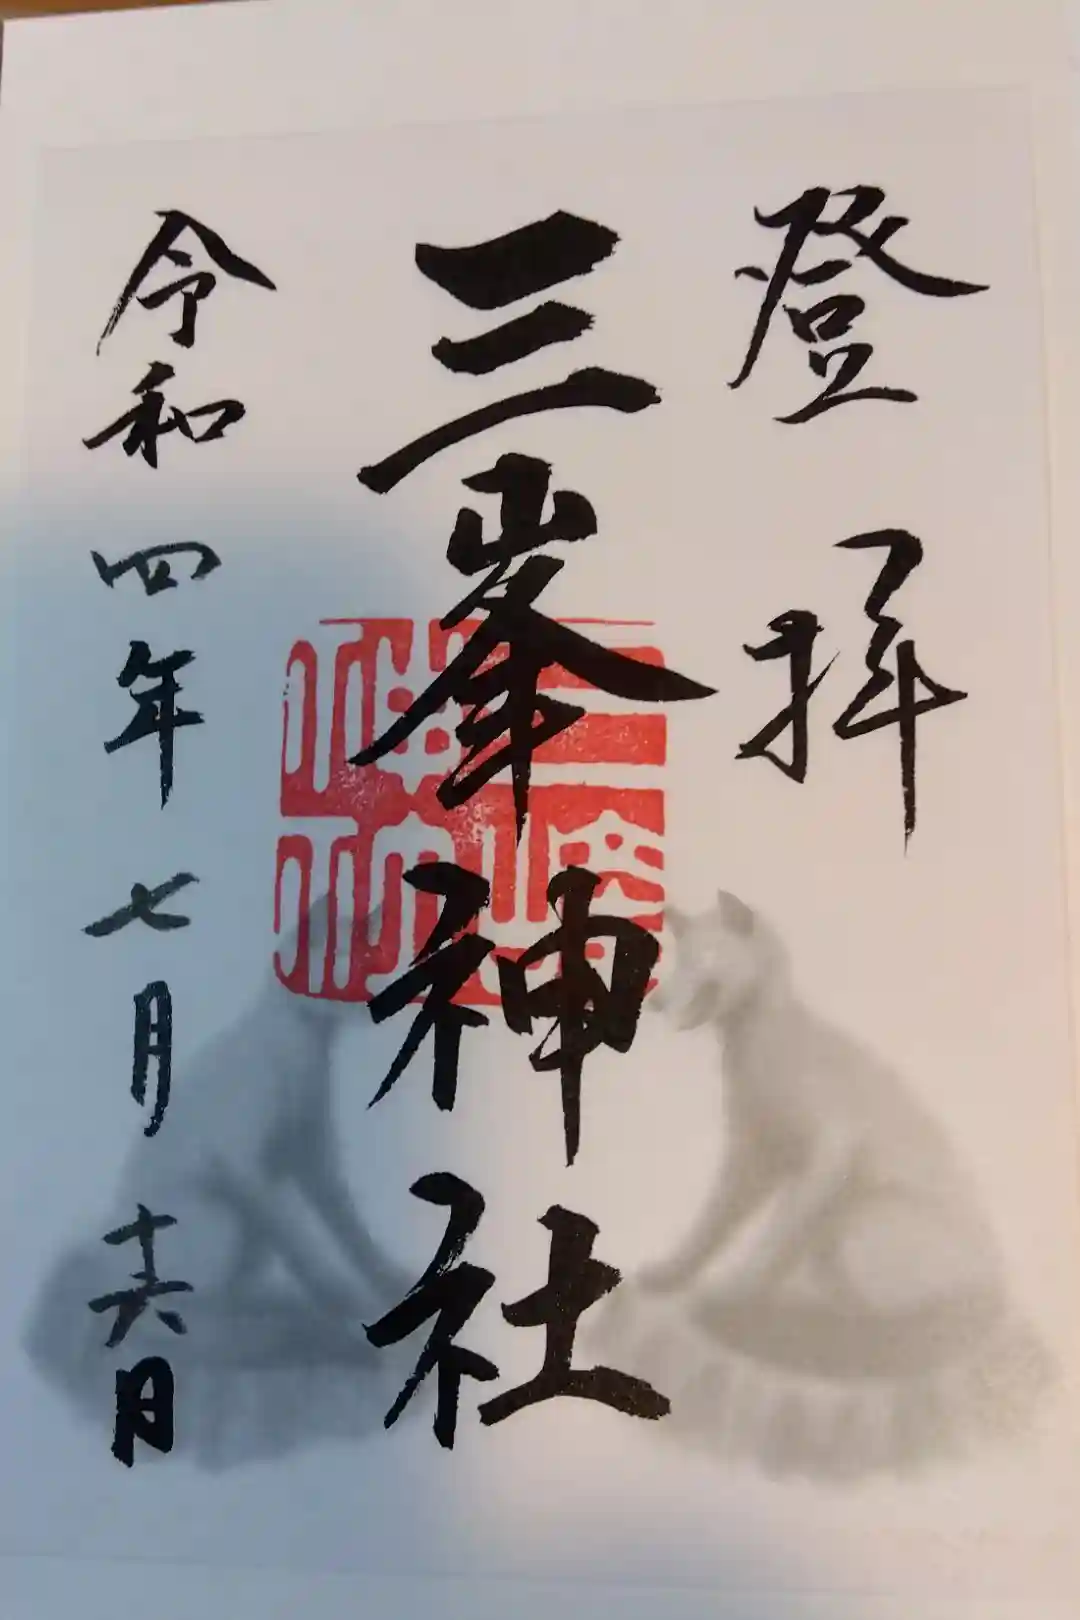 登拝
三峯神社
令和四年七月十六日